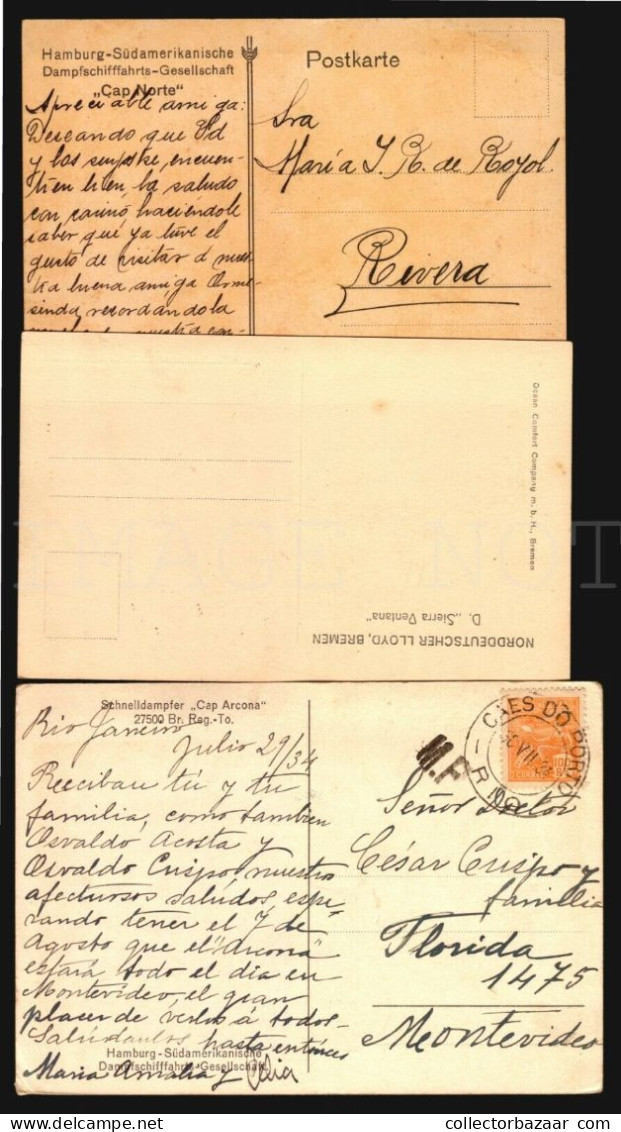 Hamburg-Südamerikanische
Dampfschifffahrts-Gesellschaft
„Cap Norte"
Apreciable amiga:
Deseando que Vd
y los suyos, encuen-
tren bien, la saludo
con cariño haciéndole
saber que ya tuve el
gusto de visitar a nues-
tra buena amiga Orme-
sinda, recordándola
Postkarte
Sra
María I. R. de
Rivera
Ocean Comfort Company m. b. H., Bremen
NORDDEUTSCHER LLOYD, BREMEN
D. „Sierra Ventana"
Schnelldampfer „Cap Arcona"
27500 Br. Reg.-To.
Rio Janeiro
Julio 29/34
Reciban tú y tu
familia, como tambien
Osvaldo Acosta y
Osvaldo Crispo, nuestros
afectuosos saludos, espe-
rando tener el 7 de
Agosto que el "Arcona"
estará todo el dia en
Montevideo, el gran
placer de verlos á todos.
Saludandolos hasta entonces
Hamburg-Südamerikanische
Dampfschifffahrts-Gesellschaft
Maria Amalia y
CAES DO PORTO
RIO
Señor Doctor
César Crispo y
familia
Florida
1475
Montevideo
collectorbazaar.com/